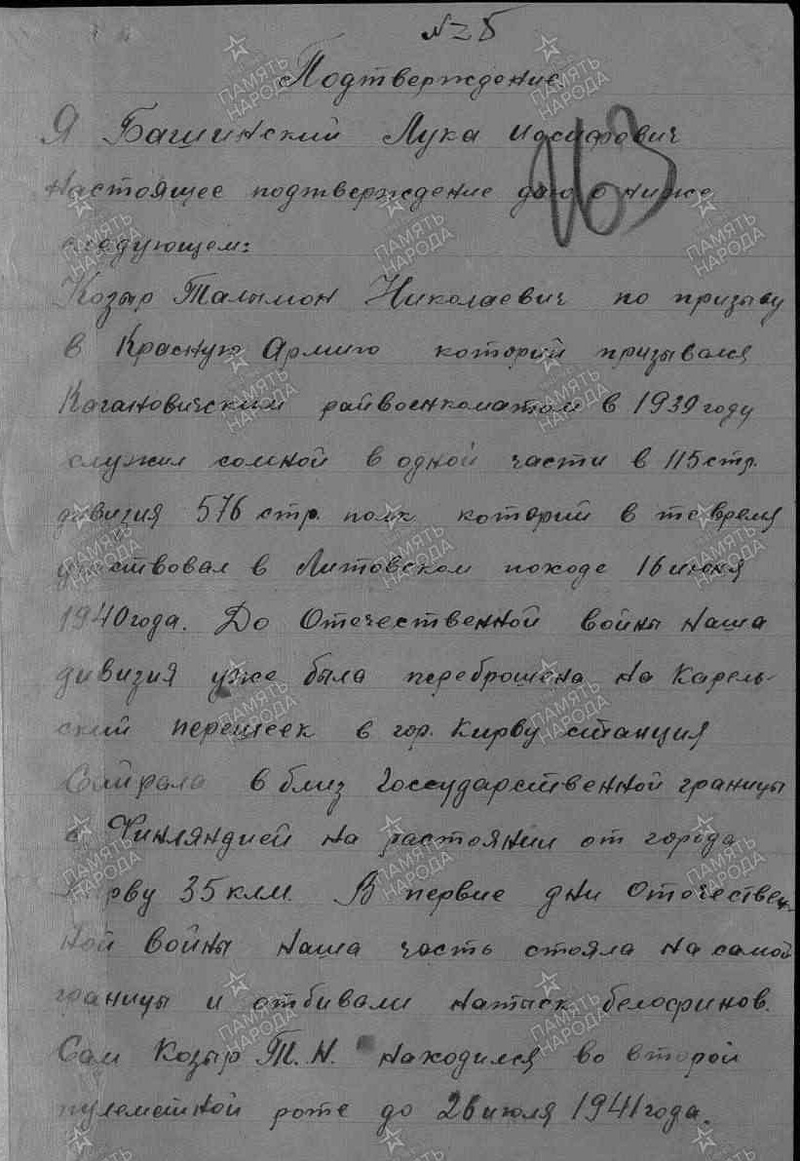 № 5
Подтверждение.
Я Башинский Лука Иосифович
настоящее подтверждение даю о ниже
следующем:
Козыр Талымон Николаевич по призыву
в Красную Армию который призывался
Кагановическим райвоенкоматом в 1939 году
служил сомной в одной части в 115 стр.
дивизия 576 стр. полк которий в то время
участвовал в Литовском походе 16 июня
1940 года. До Отечественной войны наша
дивизия уже была переброшена на Карель-
ский перешеек в гор. Кирву станция
Сайрала в близ Государственной границы
с Финляндией на растоянии от города
Кирву 35 клм. В первие дни Отечествен-
ной войны наша часть стояла на самой
границы и отбивали натиск белофинов.
Сам Козыр Т.Н. находился во второй
пулеметной роте до 26 июля 1941 года.
163
ПАМЯТЬ НАРОДА